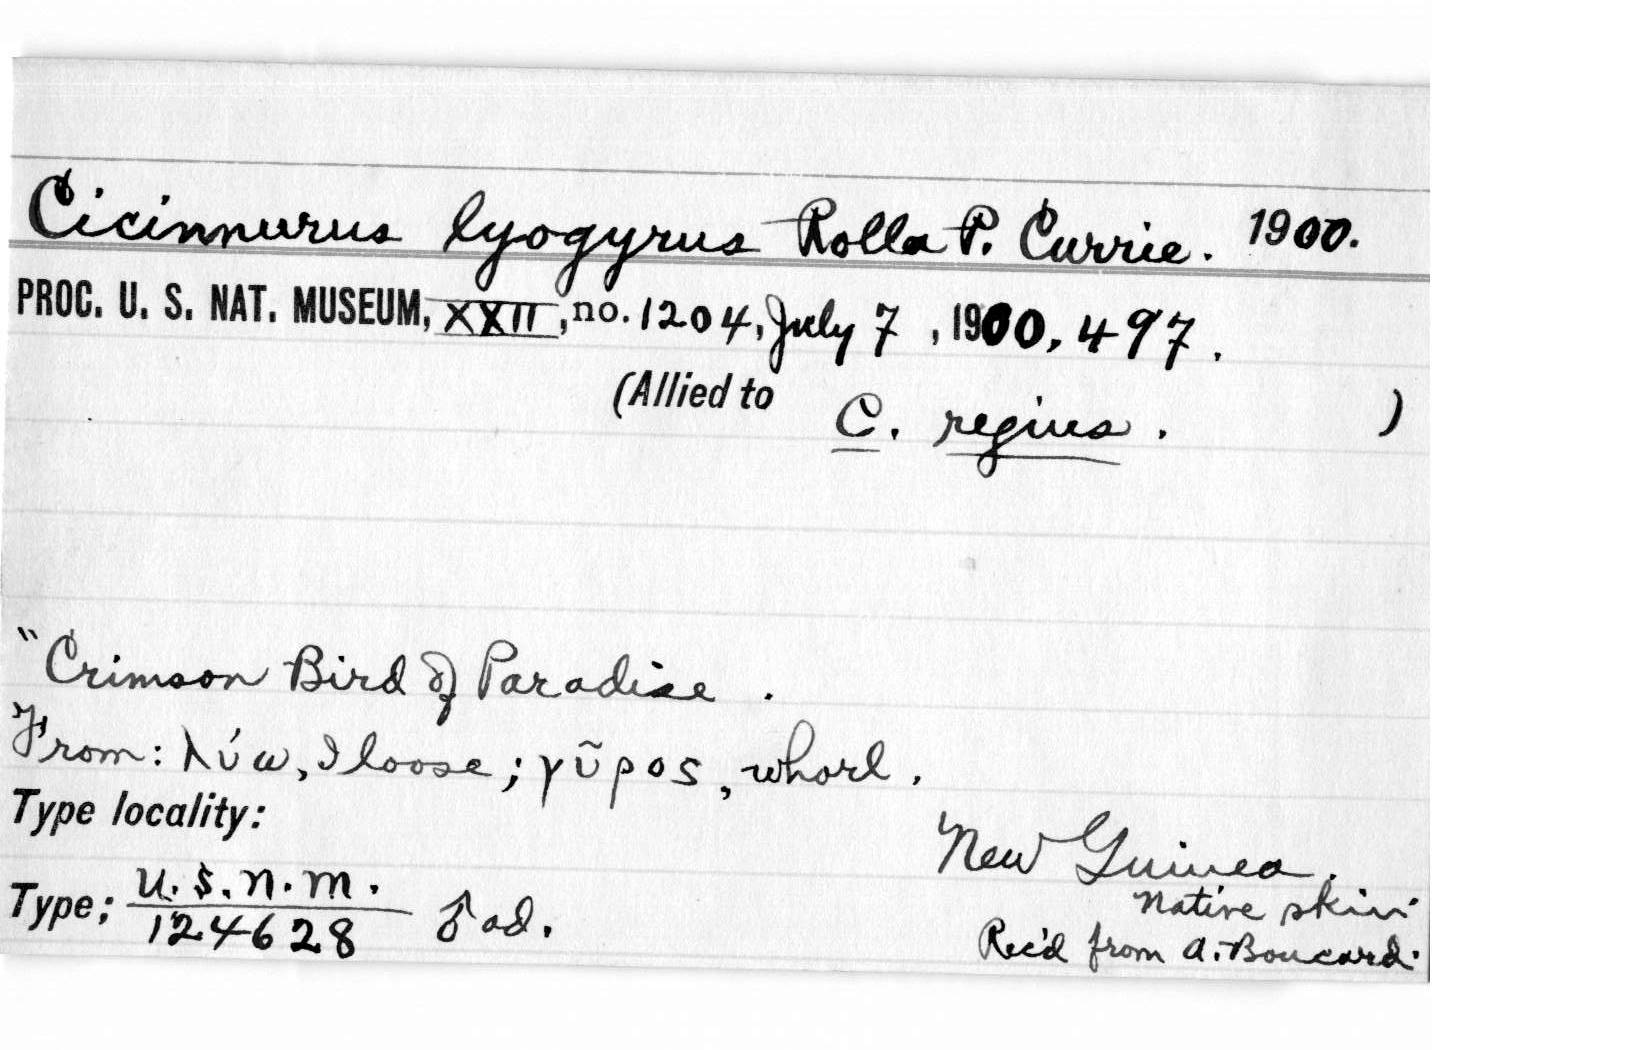 Cicinnurus lyogyrus Rolla P. Currie. 1900.
PROC. U. S. NAT. MUSEUM, XXII, no. 1204, July 7, 1900, 497.
(Allied to C. regius. )
"Crimson Bird of Paradise.
From: λύω, I loose; γῦρος, whorl.
Type locality:
New Guinea.
Native skin.
Type; U.S.N.M. 124628 ♂ ad.
Rec'd from A. Boucard.